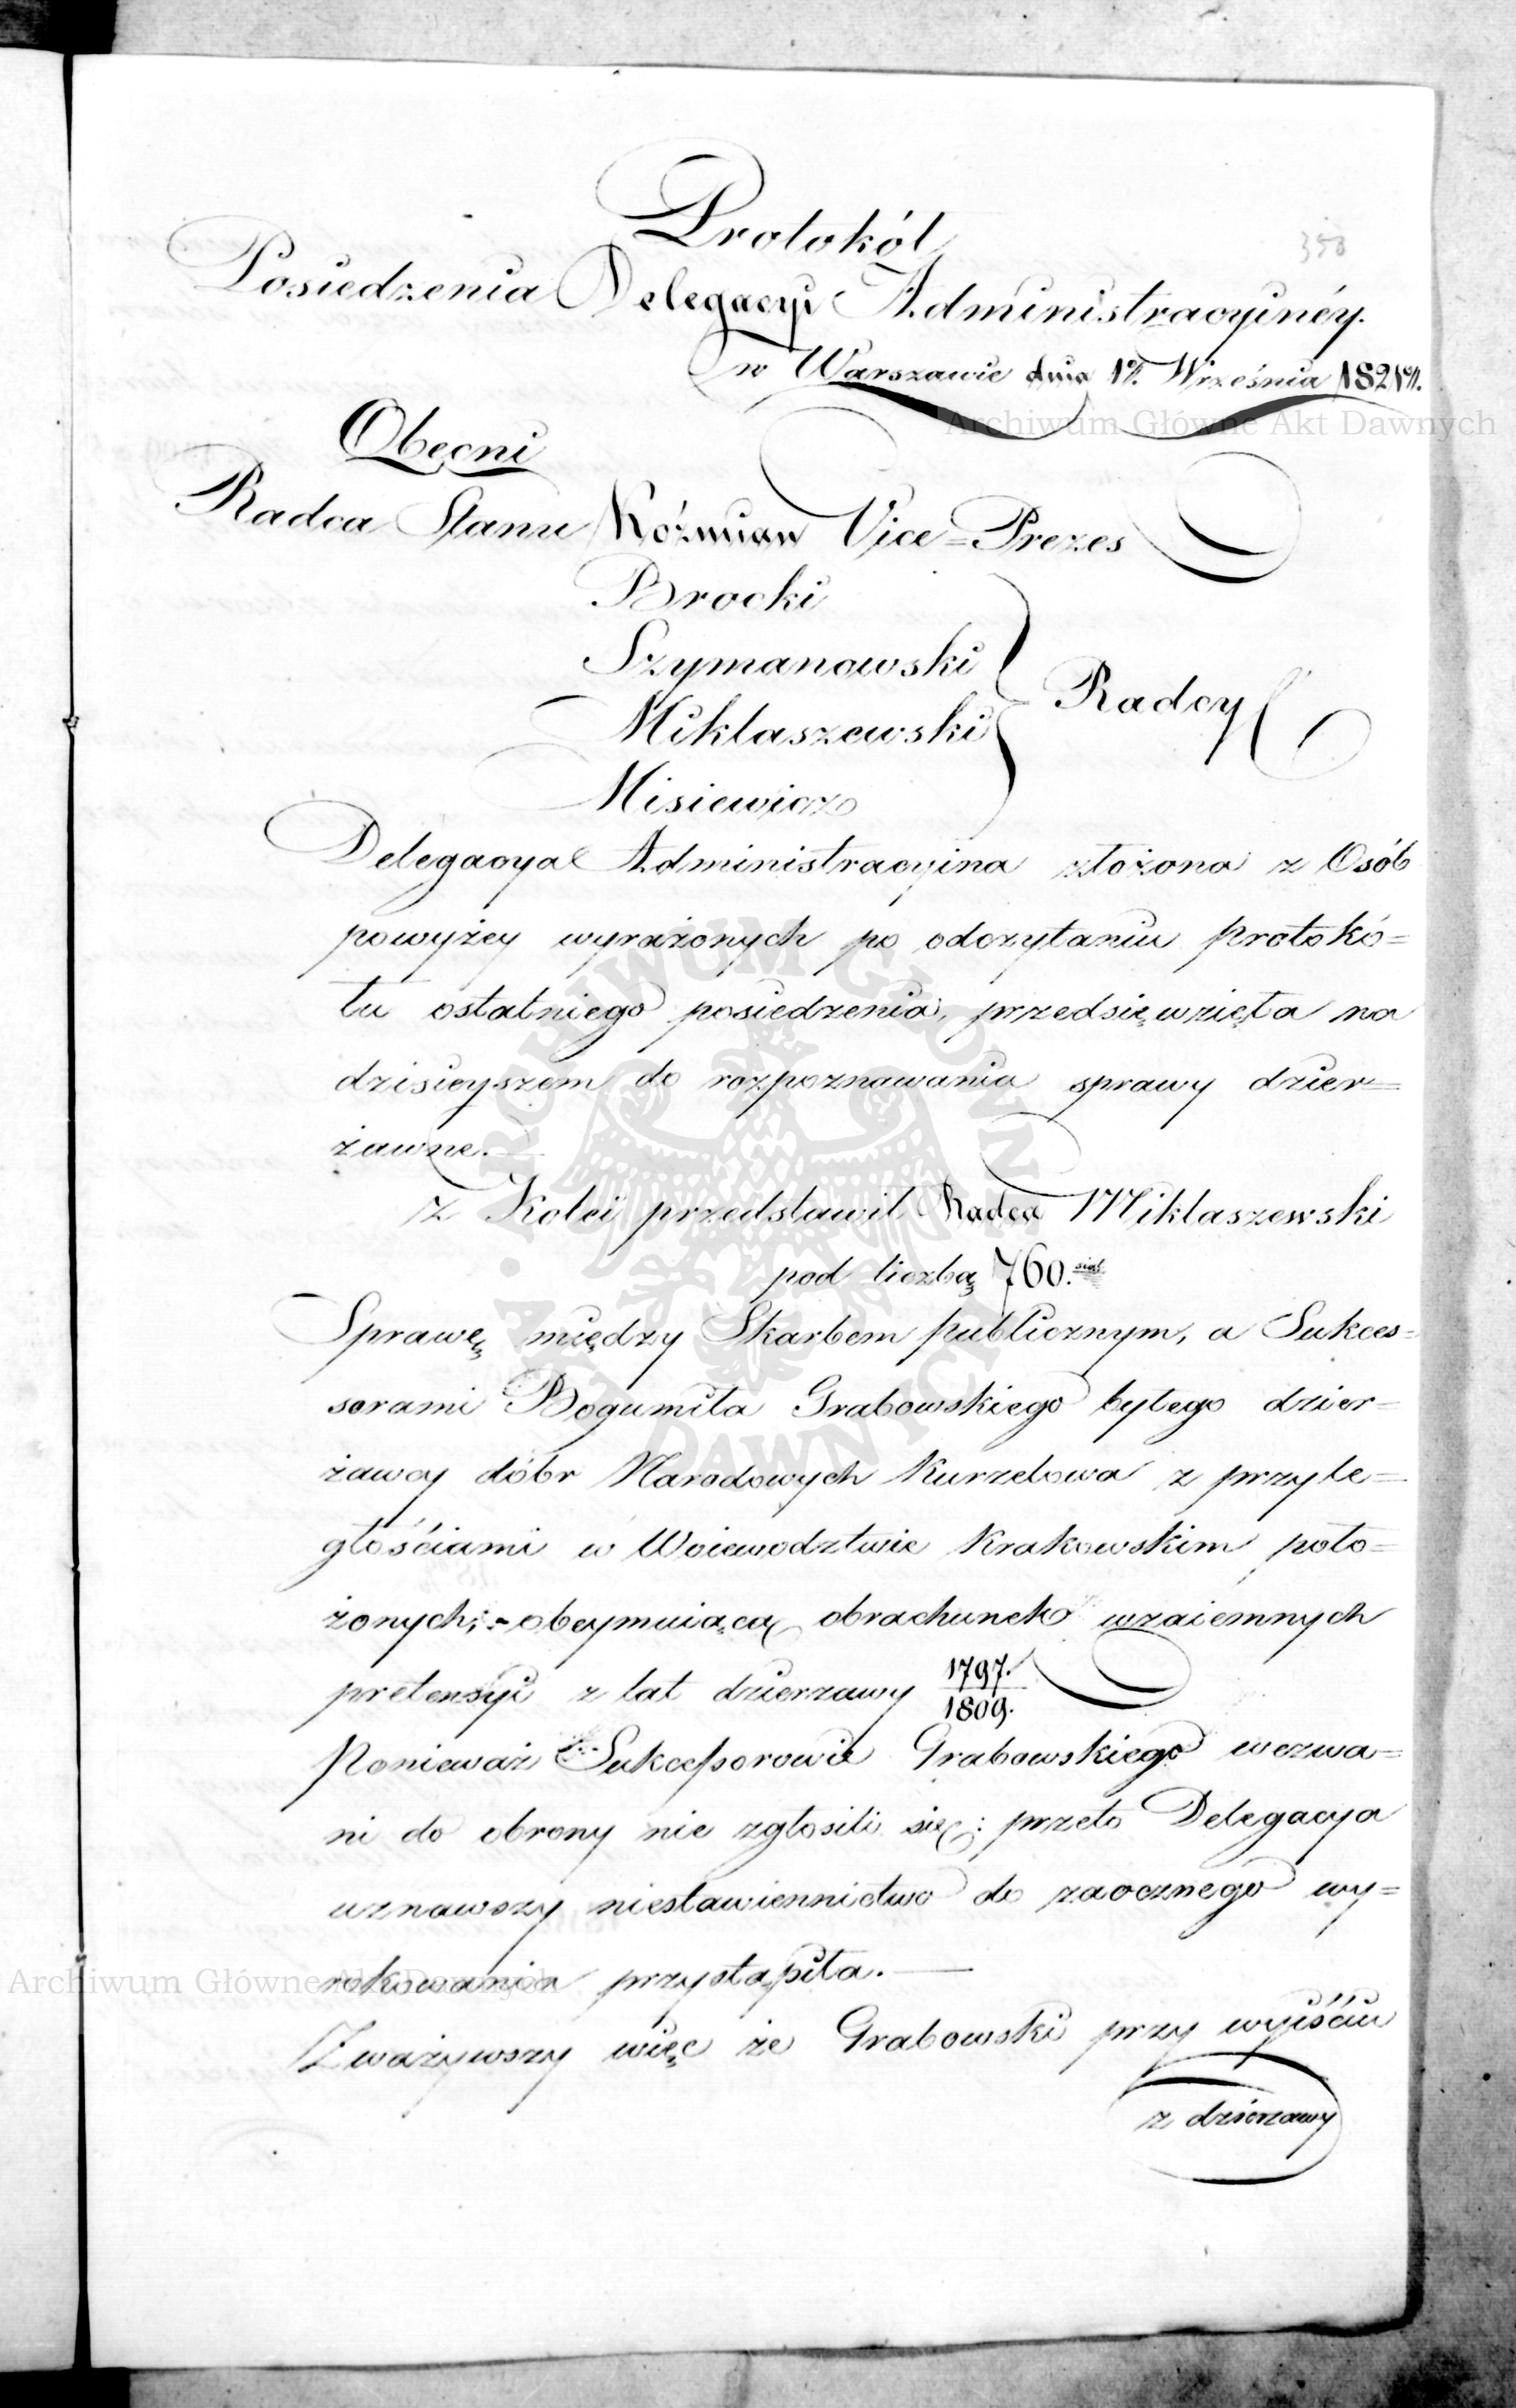 350
Protokół
Posiedzenia Delegacyi Administracyinéy.
w Warszawie dnia 1º. Września 1821º.
Archiwum Główne Akt Dawnych
Obecni
Radca Stanu Koźmian Vice=Prezes
Brocki
Szymanowski
Miklaszewski
Radcy
Misiewicz
Delegacya Administracyina złożona z Osób
powyżey wyrażonych po odczytaniu protokó=
łu ostatniego posiedzenia, przedsięwzięła na
dzisieyszem do rozpoznawania sprawy dzier=
żawne.
z Kolei przedstawił Radca Miklaszewski
pod liczbą 760.
Sprawę między Skarbem publicznym, a Sukces=
sorami Bogumiła Grabowskiego byłego dzier=
żawcy dóbr Narodowych Kurzelowa z przyle=
głościami w Woiewodztwie Krakowskim poło=
żonych; - obeymuiącą obrachunek wzaiemnych
pretensyi z lat dzierzawy 1797./1809.
Ponieważ Sukcessorowie Grabowskiego wezwa=
ni do obrony nie zgłosili się: przeto Delegacya
uznawszy niestawiennictwo do zaocznego wy=
rokowania przystąpiła. —
Archiwum Główne Akt Dawnych
Zważywszy więc że Grabowski przy wyiściu
z dzierzawy
ARCHIWUM GŁÓWNE AKT DAWNYCH